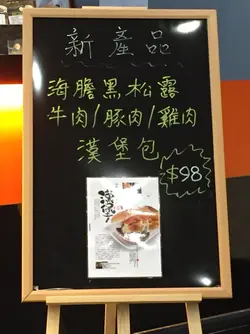 新產品
海膽黑松露
牛肉/豚肉/雞肉
漢堡包
$98